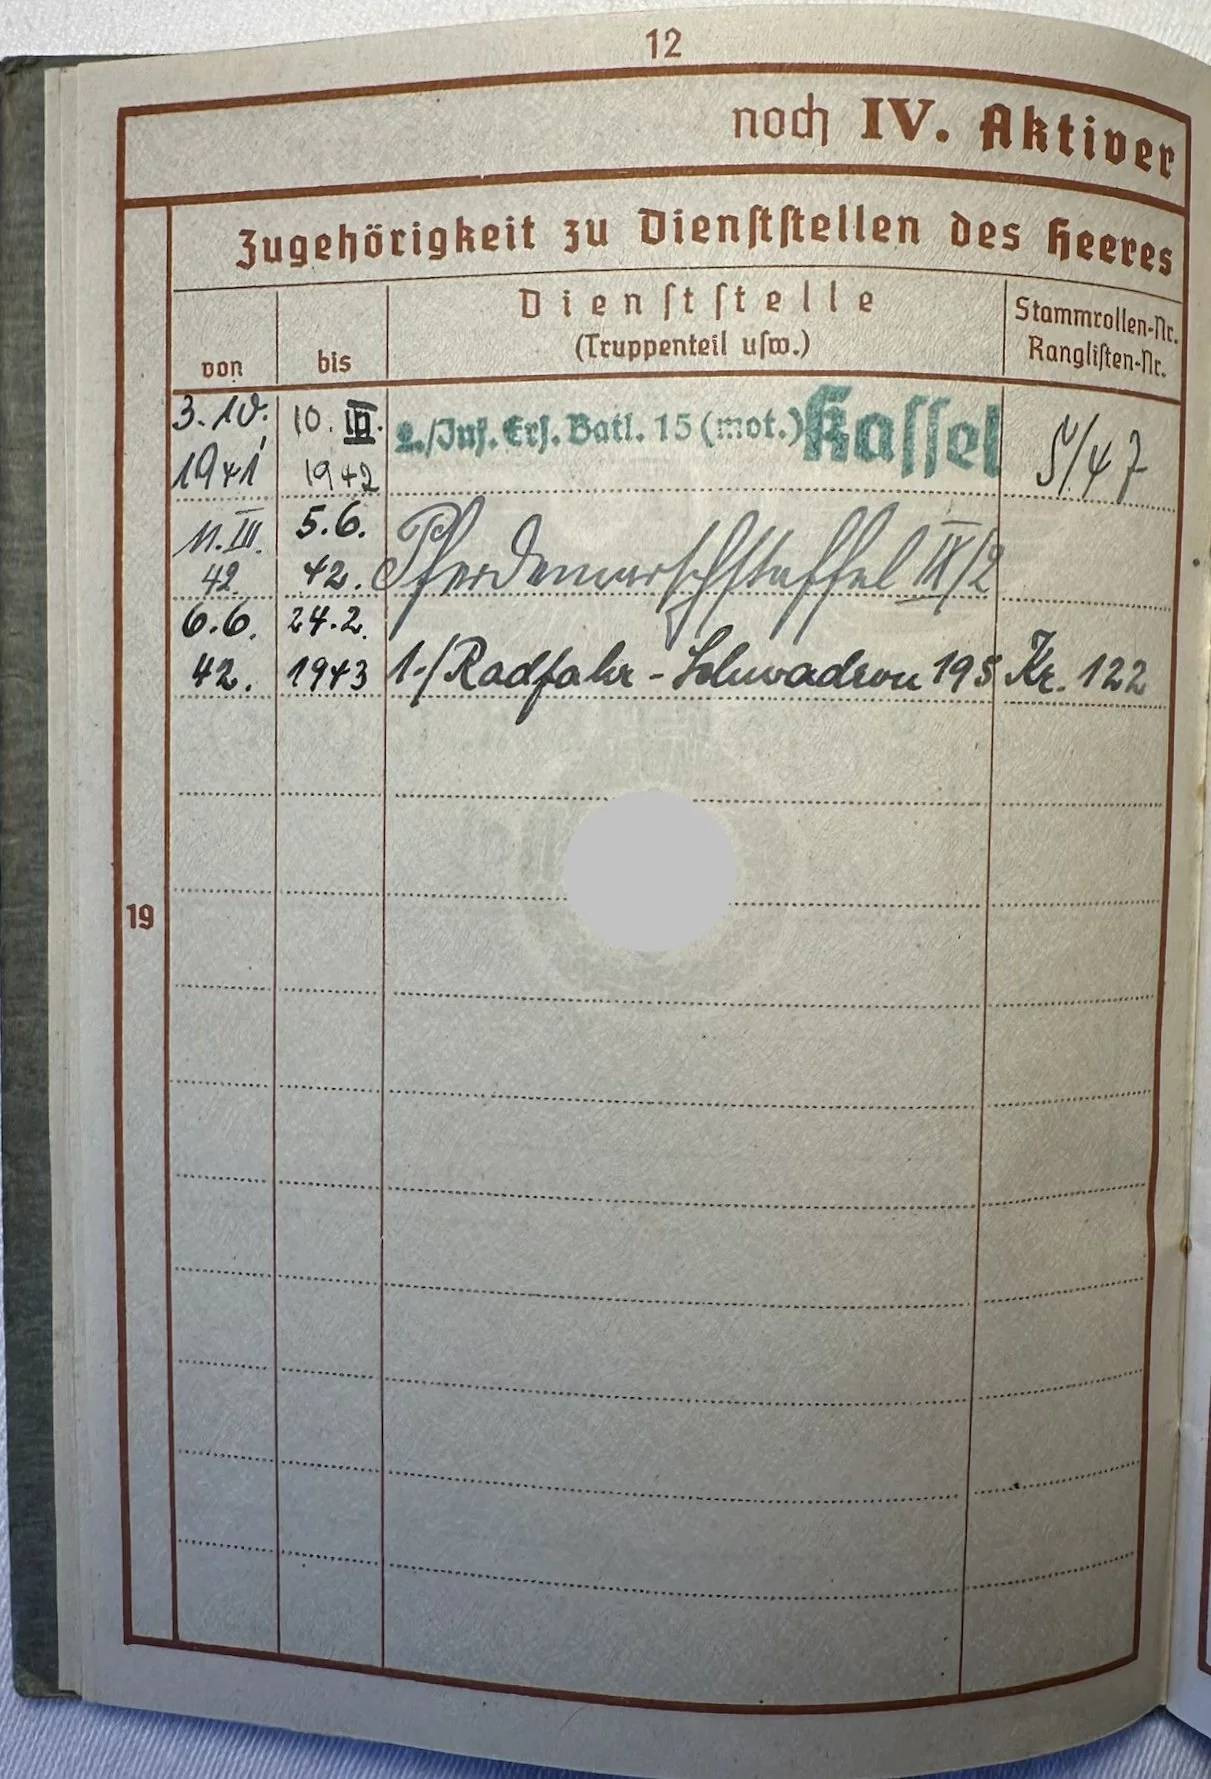 12
noch IV. Aktiver
Zugehörigkeit zu Dienststellen des Heeres
von
bis
Dienststelle
(Truppenteil usw.)
Stammrollen-Nr.
Ranglisten-Nr.
3.10. 10. III. 2./Inf. Ers. Batl. 15 (mot.) Kassel
1941 1942 5/47
11. III. 5.6. Pferdemarschstaffel IX/2
42. 42.
6.6. 24.2.
42. 1943 1./Radfahr-Schwadron 195 Kr. 122
19